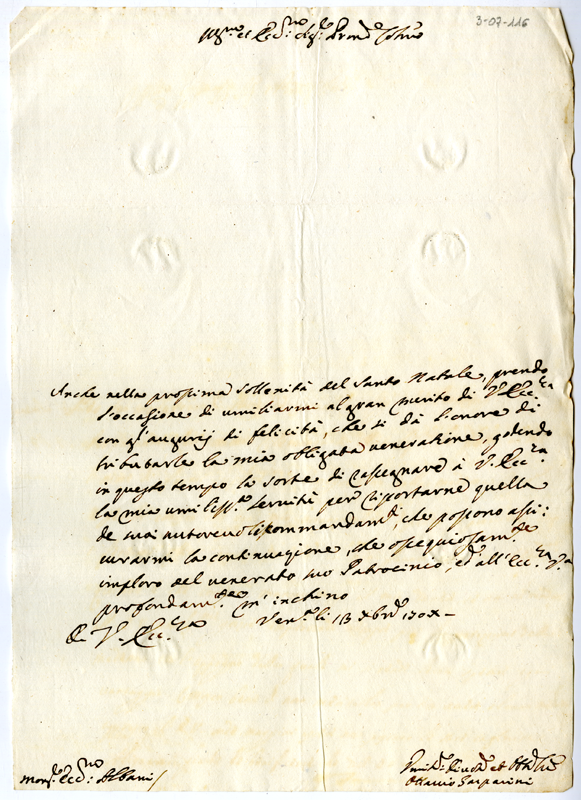 3-07-116
Ill.mo et Ecc.mo Sig.r
Anche nella prossima sollenità del Santo Natale, prendo
l'occasione di umiliarmi al gran merito di V. Ecc.za
con gl'augurij di felicità, che si dà l'onore di
tributarle la mia obligata venerazione, godendo
in questo tempo la sorte di rassegnare à V. Ecc.za
la mia umiliss.a servitù per riportarne quella
de suoi autorevoli commandam.ti, che possono assi:
curarmi la continuazione, che ossequiosam.te
imploro del venerato suo Patrocinio, ed all'Ecc.za V.a
profondam.te m'inchino
Di V. Ecc.za Ven.a li 13 Xbre
Mons.r Ecc.mo Albani
Umil.mo
Ottavio Gasparini